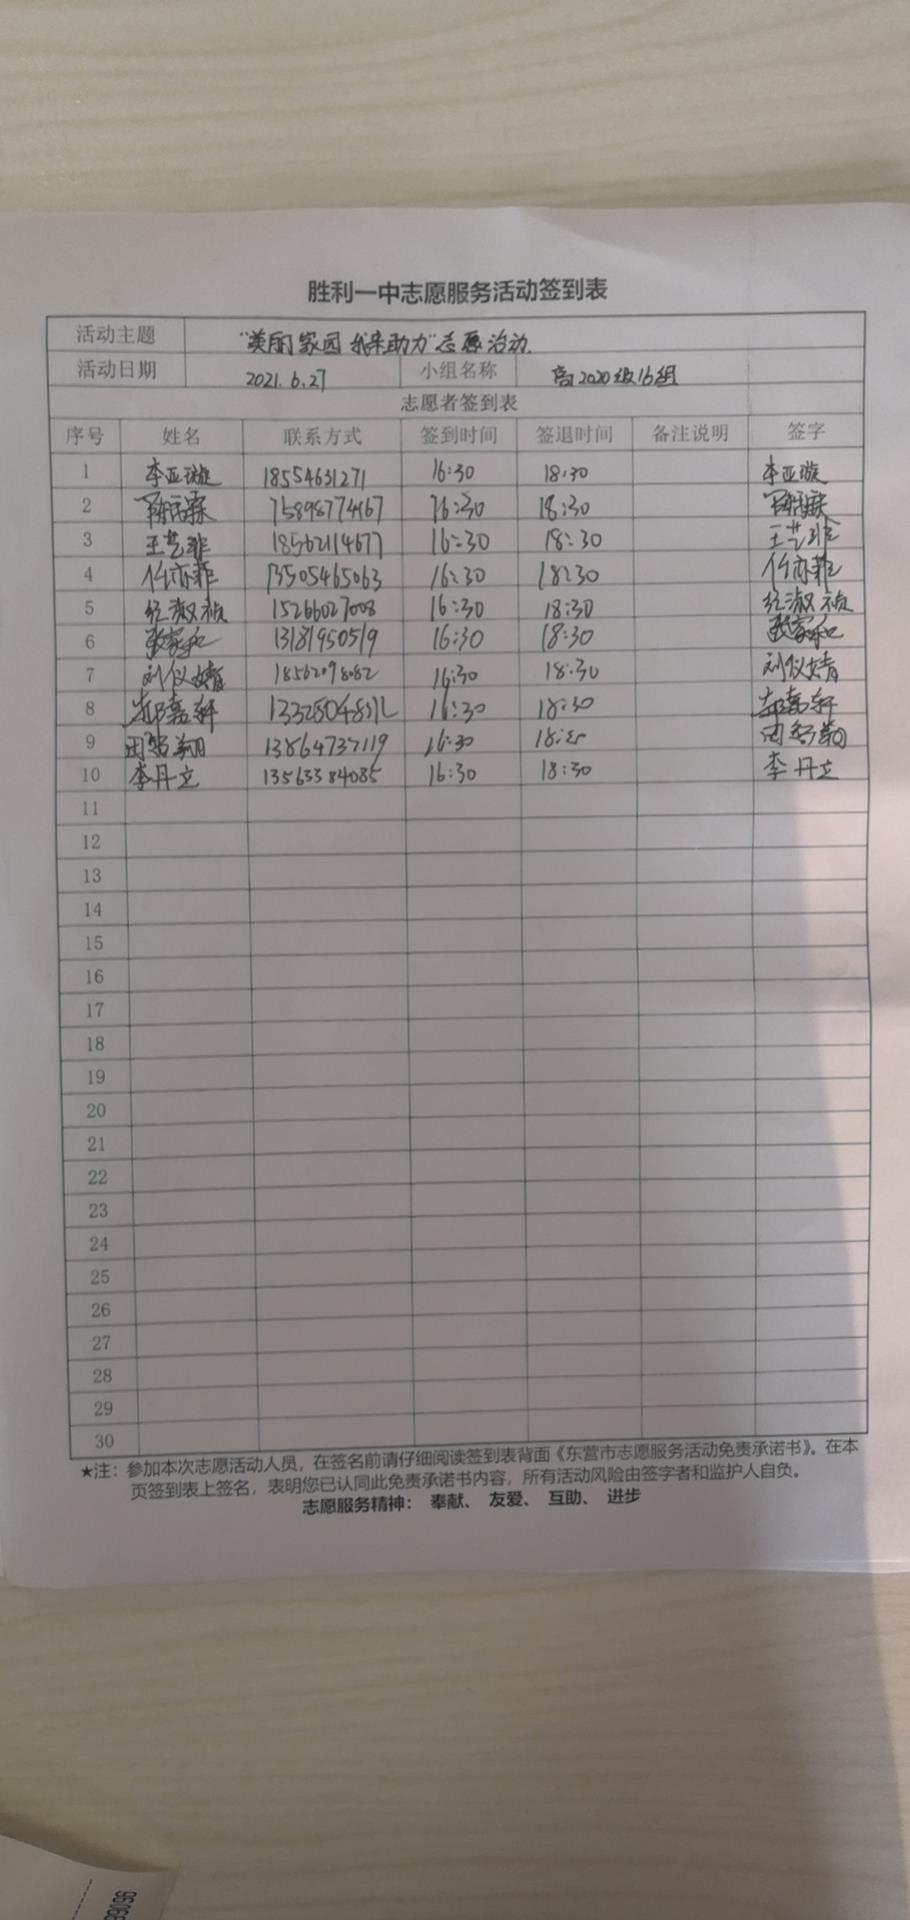 胜利一中志愿服务活动签到表
活动主题 “美丽家园 我来助力”志愿活动
活动日期 2021.6.27 小组名称 高2020级16组
志愿者签到表
序号 姓名 联系方式 签到时间 签退时间 备注说明 签字
1 李亚璇 18554631271 16:30 18:30 李亚璇
2 15898774167 16:30 18:30
3 王艺非 18562114677 16:30 18:30 王艺非
4 任亦菲 13505465063 16:30 18:30 任亦菲
5 纪淑祯 15266027008 16:30 18:30 纪淑祯
6 张家和 13181950519 16:30 18:30 张家和
7 刘仪婧 16:30 18:30 刘仪婧
8 郝嘉轩 16:30 18:30 郝嘉轩
9 13864737119 16:30
10 李丹立 13563384085 16:30 18:30 李丹立
11
12
13
14
15
16
17
18
19
20
21
22
23
24
25
26
27
28
29
30
★注：参加本次志愿活动人员，在签名前请仔细阅读签到表背面《东营市志愿服务活动免责承诺书》。在本
页签到表上签名，表明您已认同此免责承诺书内容，所有活动风险由签字者和监护人自负。
志愿服务精神： 奉献、 友爱、 互助、 进步